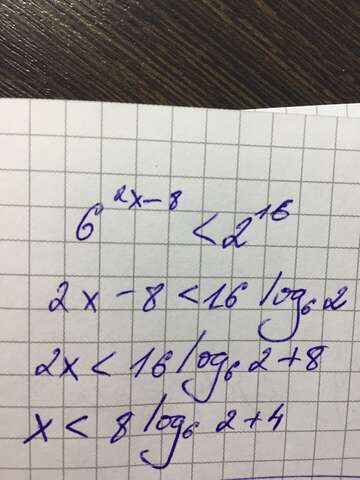 6^{2x-8} < 2^{16}
2x - 8 < 16 log₆ 2
2x < 16 log₆ 2 + 8
x < 8 log₆ 2 + 4